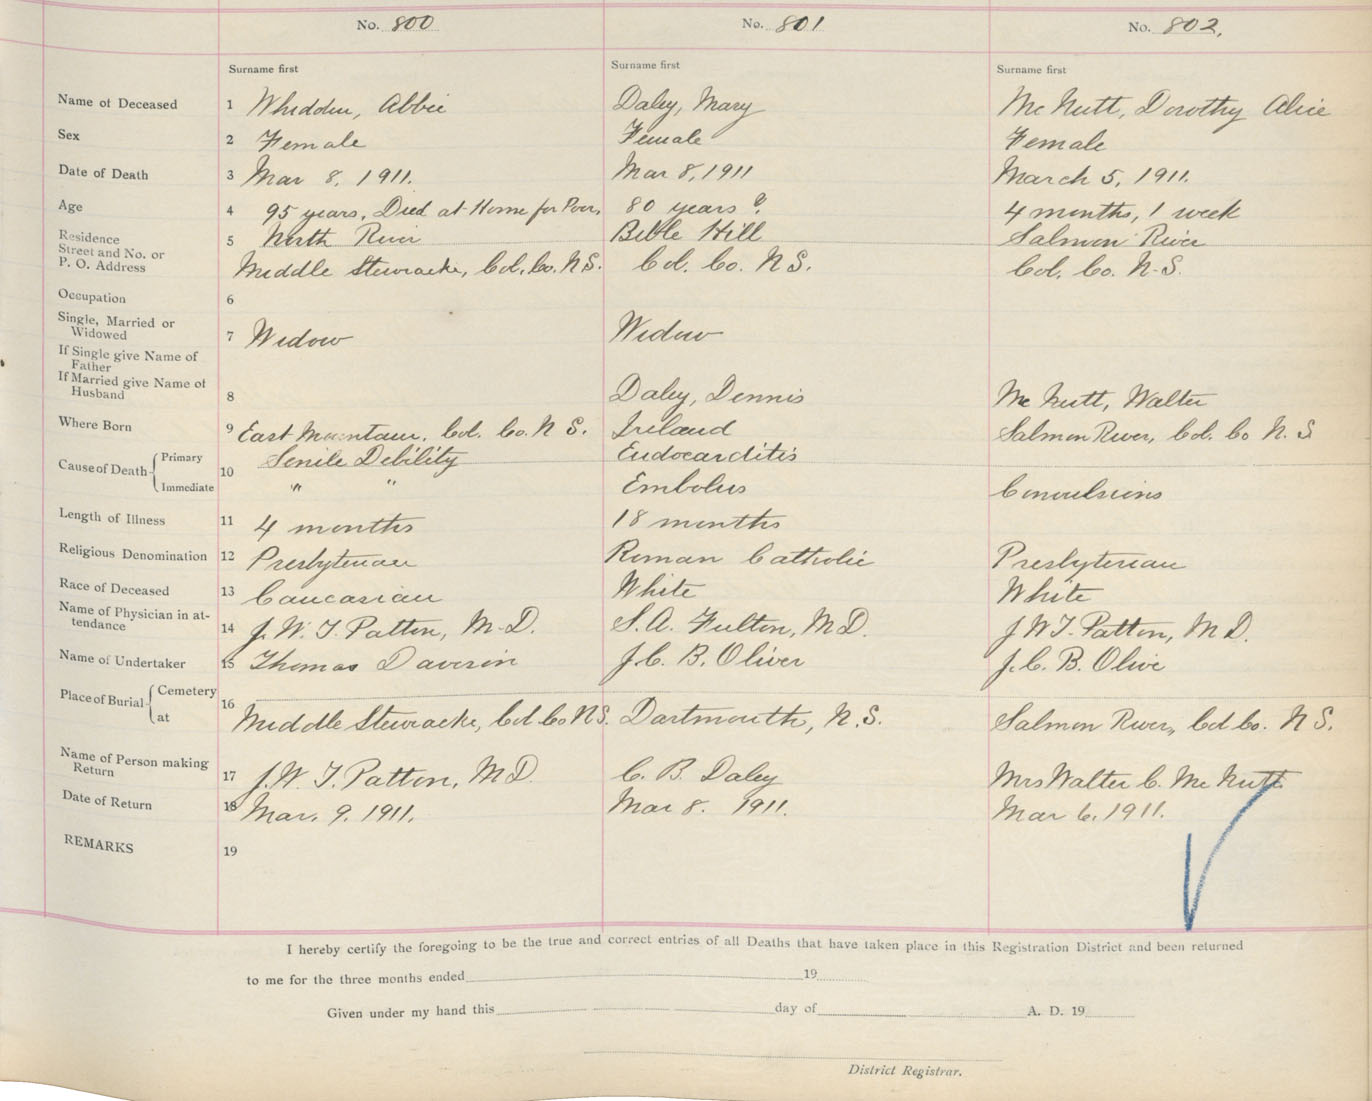 No. 800 No. 801 No. 802.
Surname first Surname first Surname first
Name of Deceased 1 Whidden, Abbie Daley, Mary McNutt, Dorothy Alice
Sex 2 Female Female Female
Date of Death 3 Mar 8, 1911. Mar 8, 1911 March 5, 1911.
Age 4 95 years, Died at Home for Poor, 80 years ? 4 months, 1 week
Residence 5 North River Bible Hill Salmon River
Street and No. or
P. O. Address Middle Stewiacke, Col. Co. N S. Col. Co. N S. Col. Co. N-S.
Occupation 6
Single, Married or
Widowed 7 Widow Widow
If Single give Name of
Father
If Married give Name of
Husband 8 Daley, Dennis McNutt, Walter
Where Born 9 East Mountain, Col. Co. N S. Ireland Salmon River, Col. Co N. S
Cause of Death Primary 10 Senile Debility Endocarditis
Immediate " " Embolus Convulsions
Length of Illness 11 4 months 18 months
Religious Denomination 12 Presbyterian Roman Catholic Presbyterian
Race of Deceased 13 Caucasian White White
Name of Physician in at-
tendance 14 J. W. T. Patton, M-D. S. A. Fulton, M D. J W T. Patton, M D.
Name of Undertaker 15 Thomas Davison J. C. B. Oliver J. C. B. Olive
Place of Burial Cemetery 16
at Middle Stewiacke, Col Co N S. Dartmouth, N. S. Salmon River, Col Co. N S.
Name of Person making
Return 17 J. W. T. Patton, M D. C. B. Daley Mrs Walter C. McNutt
Date of Return 18 Mar. 9. 1911. Mar 8. 1911. Mar 6. 1911.
REMARKS 19
I hereby certify the foregoing to be the true and correct entries of all Deaths that have taken place in this Registration District and been returned
to me for the three months ended 19
Given under my hand this day of A. D. 19
District Registrar.